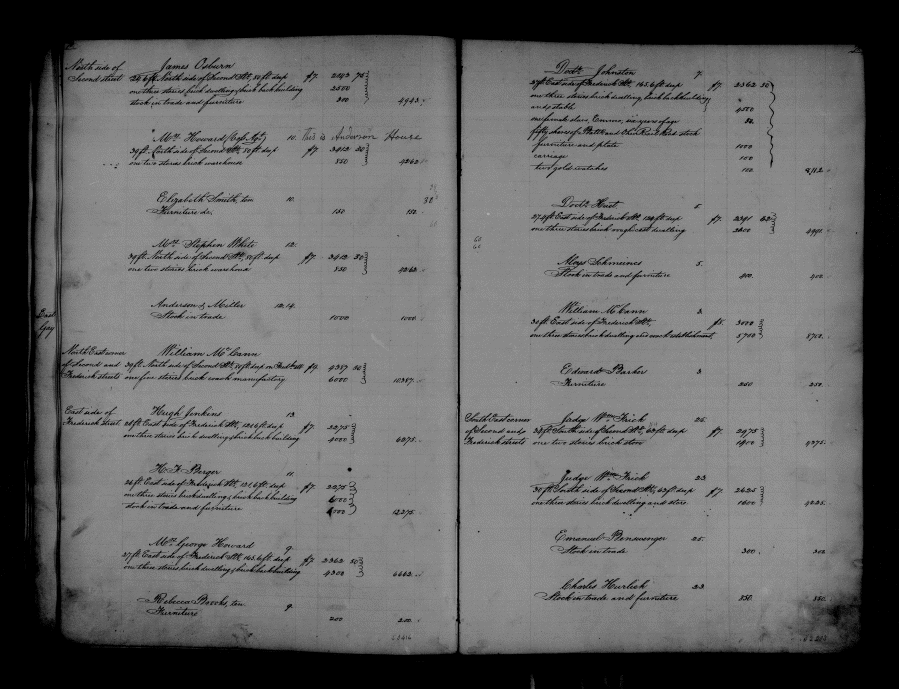 North side of James Osburn
Second street 24.6 ft. North side of Second St., 80 ft deep ft. 2143 75
one three stories brick dwelling & brick back building 2500
stock in trade and furniture 300 4943
Mrs. Howard 10. This is Anderson House
39 ft. North side of Second St. 80 ft deep ft. 3412 50
one two stories brick warehouse 850 4262
Elizabeth Smith, ten 10.
Furniture &c. 150 150
Mrs. Stephen White 12.
39 ft. North side of Second St., 80 ft deep ft. 3412 50
one two stories brick warehouse 850 4262
Anderson & Miller 12.14.
Stock in trade 1000 1000
East
Gay
North East corner William McCann
of Second and 39 ft. North side of Second St., 80 ft deep on 4387 50
Frederick streets one five stories brick coach manufactory 6000 10387
East side of Hugh Jenkins 13.
Frederick street 26 ft. East side of Frederick St., 121.6 ft deep ft. 2275
one three stories brick dwelling & brick back building 4000 6275
H. F. Berger 11.
26 ft. East side of Frederick St., 121.6 ft deep ft. 2275
one three stories brick dwelling & brick back building
stock in trade and furniture 12275
Mrs. George Howard 9.
27 ft. East side of Frederick St., 165.6 ft deep ft. 2362 50
one three stories brick dwelling & brick back building 4300 6662
Rebecca Brooks, ten 9.
Furniture 200 200
Doctr. Johnston 7.
27 ft. East side of Frederick St. 165.6 ft deep ft. 2362 50
one three stories brick dwelling, brick back building
and stable 4500
one female slave, Emma, six years of age 50.
fifty shares of Balt. and Ohio Rail Road stock
furniture and plate 1000
carriage 100
two gold watches 100 8712
Doctr. 5.
ft. East side of Frederick St. 129 ft deep ft. 2391 62
one three stories brick roughcast dwelling 4991
60
60
Aloys Schmeines 5.
Stock in trade and furniture 400 400
William McCann 3.
30 ft. East side of Frederick St., ft. 3000
one three stories brick dwelling and coach establishment 5750
Edward Barker 3
Furniture 250 250
South East corner Judge Wm. Frick 25.
of Second and 34 ft. South side of Second St., 63 ft deep ft. 2975
Frederick streets one two stories brick store 1400 4375
Judge Wm. Frick 23
30 ft. South side of Second St., 63 ft deep ft. 2625
one three stories brick dwelling and store 1600 4225
Emanuel 25.
Stock in trade 300 300
Charles Hurlick 23
Stock in trade and furniture 850 850